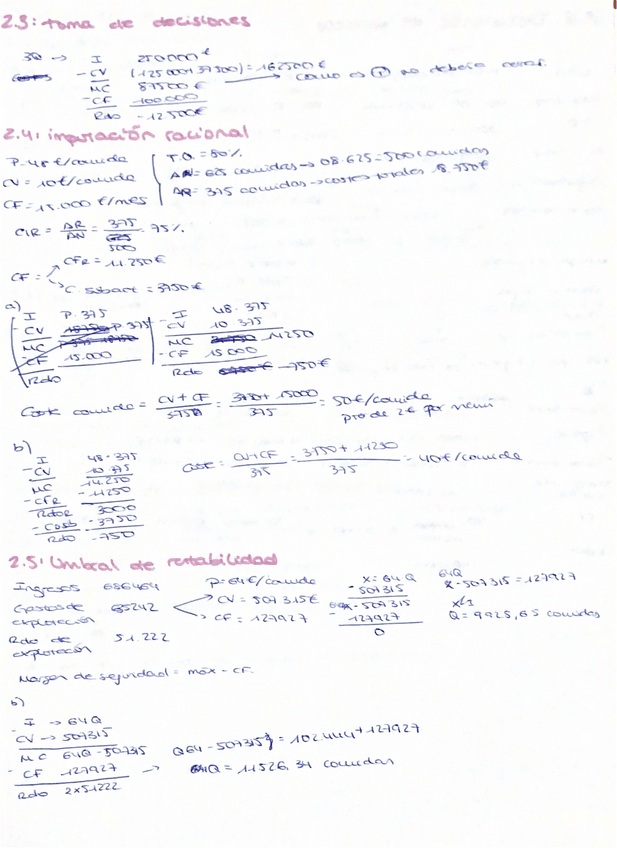 2.3: toma de decisiones
3Q → I 250000 €
- CV (125000+37500) = 162500 € → como es ⊕ no debería cerrar.
MC 87500 €
- CF 100.000
Rdo - 12.500€
2.4: imputación racional
P = 48 €/comida
CV = 10€/comida
CF = 15.000 €/mes
T.O. = 80%
AN = 625 comidas → 0'8·625 = 500 comidas
AR = 375 comidas → costes totales 18.750€
CIR = AR/AN = 375/500 = 75%
CF = CFR = 11.250€
C. subact = 3750€
a)
I P·375
- CV P·375
MC
- CF 15.000
Rdo
I 48·375
CV 10·375
MC 14250
- CF 15000
Rdo -750€
Coste comida = CV + CF / 375 = 3750 + 15000 / 375 = 50€/comida
b)
I 48·375
- CV 10·375
MC 14.250
- CFR - 11250
RdoR 3000
- Cosb - 3750
Rdo -750
Cost = CV+CF / 375 = 3750 + 11250 / 375 = 40€/comida
2.5: Umbral de rentabilidad
Ingresos 686464
Gastos de explotación 635242
CV = 507315€
CF = 127927
Rdo de explotación 51.222
P = 64€/comida
x = 64Q
- 507315
- 507315
- 127927
0
64Q
- 507315 = 127927
Q = 9925,65 comidas
Margen de seguridad = máx - CF.
b)
I → 64Q
CV → 507315
MC 64Q - 507315
- CF 127927 →
Rdo 2x51222
Q64 - 507315 = 102.444 + 127927
Q = 11526,34 comidas